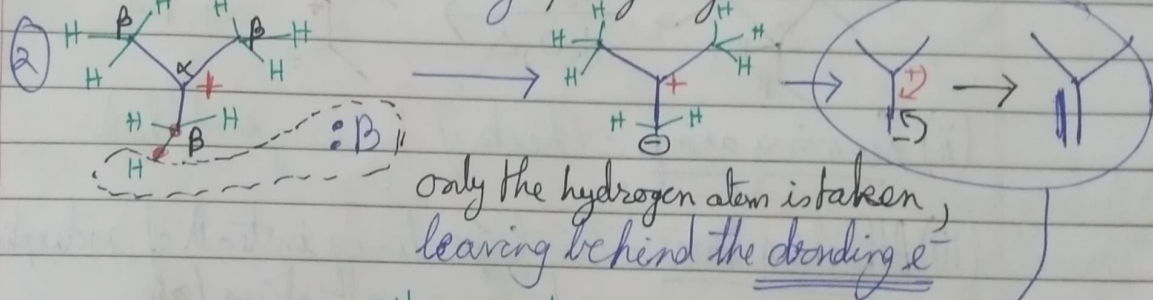 ②
H β H H β H
H α + H
H H β
H :B
H H H
H + H
H H
⊖
+
only the hydrogen atom is taken,
leaving behind the bonding e⁻